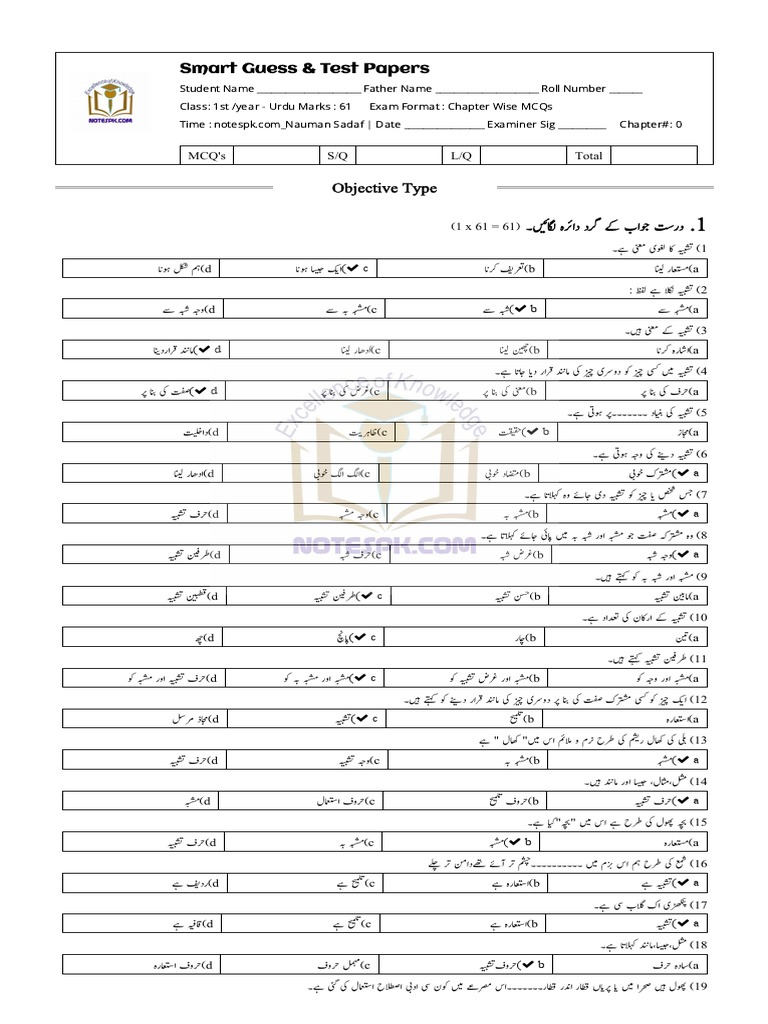 Smart Guess & Test Papers
Student Name ____________________ Father Name ____________________ Roll Number ______
Class: 1st /year - Urdu Marks : 61 Exam Format : Chapter Wise MCQs
Time : notespk.com_Nauman Sadaf | Date _______________ Examiner Sig _________ Chapter#: 0
Excellence of Knowledge
NOTESPK.COM
MCQ's S/Q L/Q Total
Objective Type
1. درست جواب کے گرد دائرہ لگائیں۔ (1 x 61 = 61)
1) تشبیہ کا لغوی معنی ہے۔
a)مستعار لینا b)تعریف کرنا ✔ c)ایک جیسا ہونا d)ہم شکل ہونا
2) تشبیہ نکلا ہے لفظ :
a)مشبہ سے ✔ b)شبہ سے c)مشبہ بہ سے d)وجہ شبہ سے
3) تشبیہ کے معنی ہیں۔
a)اشارہ کرنا b)چھین لینا c)ادھار لینا ✔ d)مانند قراردینا
4) تشبیہ میں کسی چیز کو دوسری چیز کی مانند قرار دیا جاتا ہے۔
a)حرف کی بنا پر b)معنی کی بنا پر c)غرض کی بنا پر ✔ d)صفت کی بنا پر
5) تشبیہ کی بنیاد -------پر ہوتی ہے۔
a)مجاز ✔ b)حقیقت c)ظاہریت d)داخلیت
6) تشبیہ دینے کی وجہ ہوتی ہے۔
✔ a)مشترک خوبی b)متضاد خوبی c)الگ الگ خوبی d)ادھار لینا
7) جس شخص یا چیز کو تشبیہ دی جائے وہ کہلاتا ہے۔
✔ a)مشبہ b)مشبہ بہ c)وجہ مشبہ d)حرف تشبیہ
8) وہ مشترکہ صفت جو مشبہ اور شبہ بہ میں پائی جائے کہلاتا ہے۔
✔ a)وجہ شبہ b)غرض شبہ c)حرف شبہ d)طرفین تشبیہ
9) مشبہ اور شبہ بہ کو کہتے ہیں۔
a)مابین تشبیہ b)حسن تشبیہ ✔ c)طرفین تشبیہ d)قطبین تشبیہ
10) تشبیہ کے ارکان کی تعداد ہے۔
a)تین b)چار ✔ c)پانچ d)چھ
11) طرفین تشبیہ کہتے ہیں۔
a)مشبہ اور وجہ کو b)مشبہ اور غرض تشبیہ کو ✔ c)مشبہ اور مشبہ بہ کو d)حرف تشبیہ اور مشبہ کو
12) ایک چیز کو کسی مشترک صفت کی بنا پر دوسری چیز کی مانند قرار دینے کو کہتے ہیں۔
a)استعارہ b)تلمیح ✔ c)تشبیہ d)مجاز مرسل
13) بلی کی کھال ریشم کی طرح نرم و ملائم اس میں" کھال " ہے
✔ a)مشبہ b)مشبہ بہ c)وجہ تشبیہ d)حرف تشبیہ
14) مثل،مثال، جیسا اور مانند ہیں۔
✔ a)حرف تشبیہ b)حروف تلمیح c)حروف استعمال d)مشبہ
15) بچہ پھول کی طرح ہے اس میں "بچہ"کیا ہے۔
a)مستعارہ ✔ b)مشبہ c)مشبہ بہ d)حرف تشبیہ
16) شمع کی طرح ہم اس بزم میں ----------چشم تر آئے تھےدامن تر چلے
✔ a)تشبیہ ہے b)استعارہ ہے c)تلمیح ہے d)ردیف ہے
17) پنکھڑی اک گلاب سی ہے۔
✔ a)تشبیہ b)استعارہ ہے c)تلمیح ہے d)قافیہ ہے
18) مثل،جیسا،مانند کہلاتا ہے۔
a)سادہ حرف ✔ b)حروف تشبیہ c)مہمل حروف d)حروف استعارہ
19) پھول ہیں صحرا میں یا پریاں قطار اندر قطار-------اس مصرعے میں کون سی ادبی اصطلاح استعمال کی گئی ہے۔
Excellence of Knowledge
NOTESPK.COM